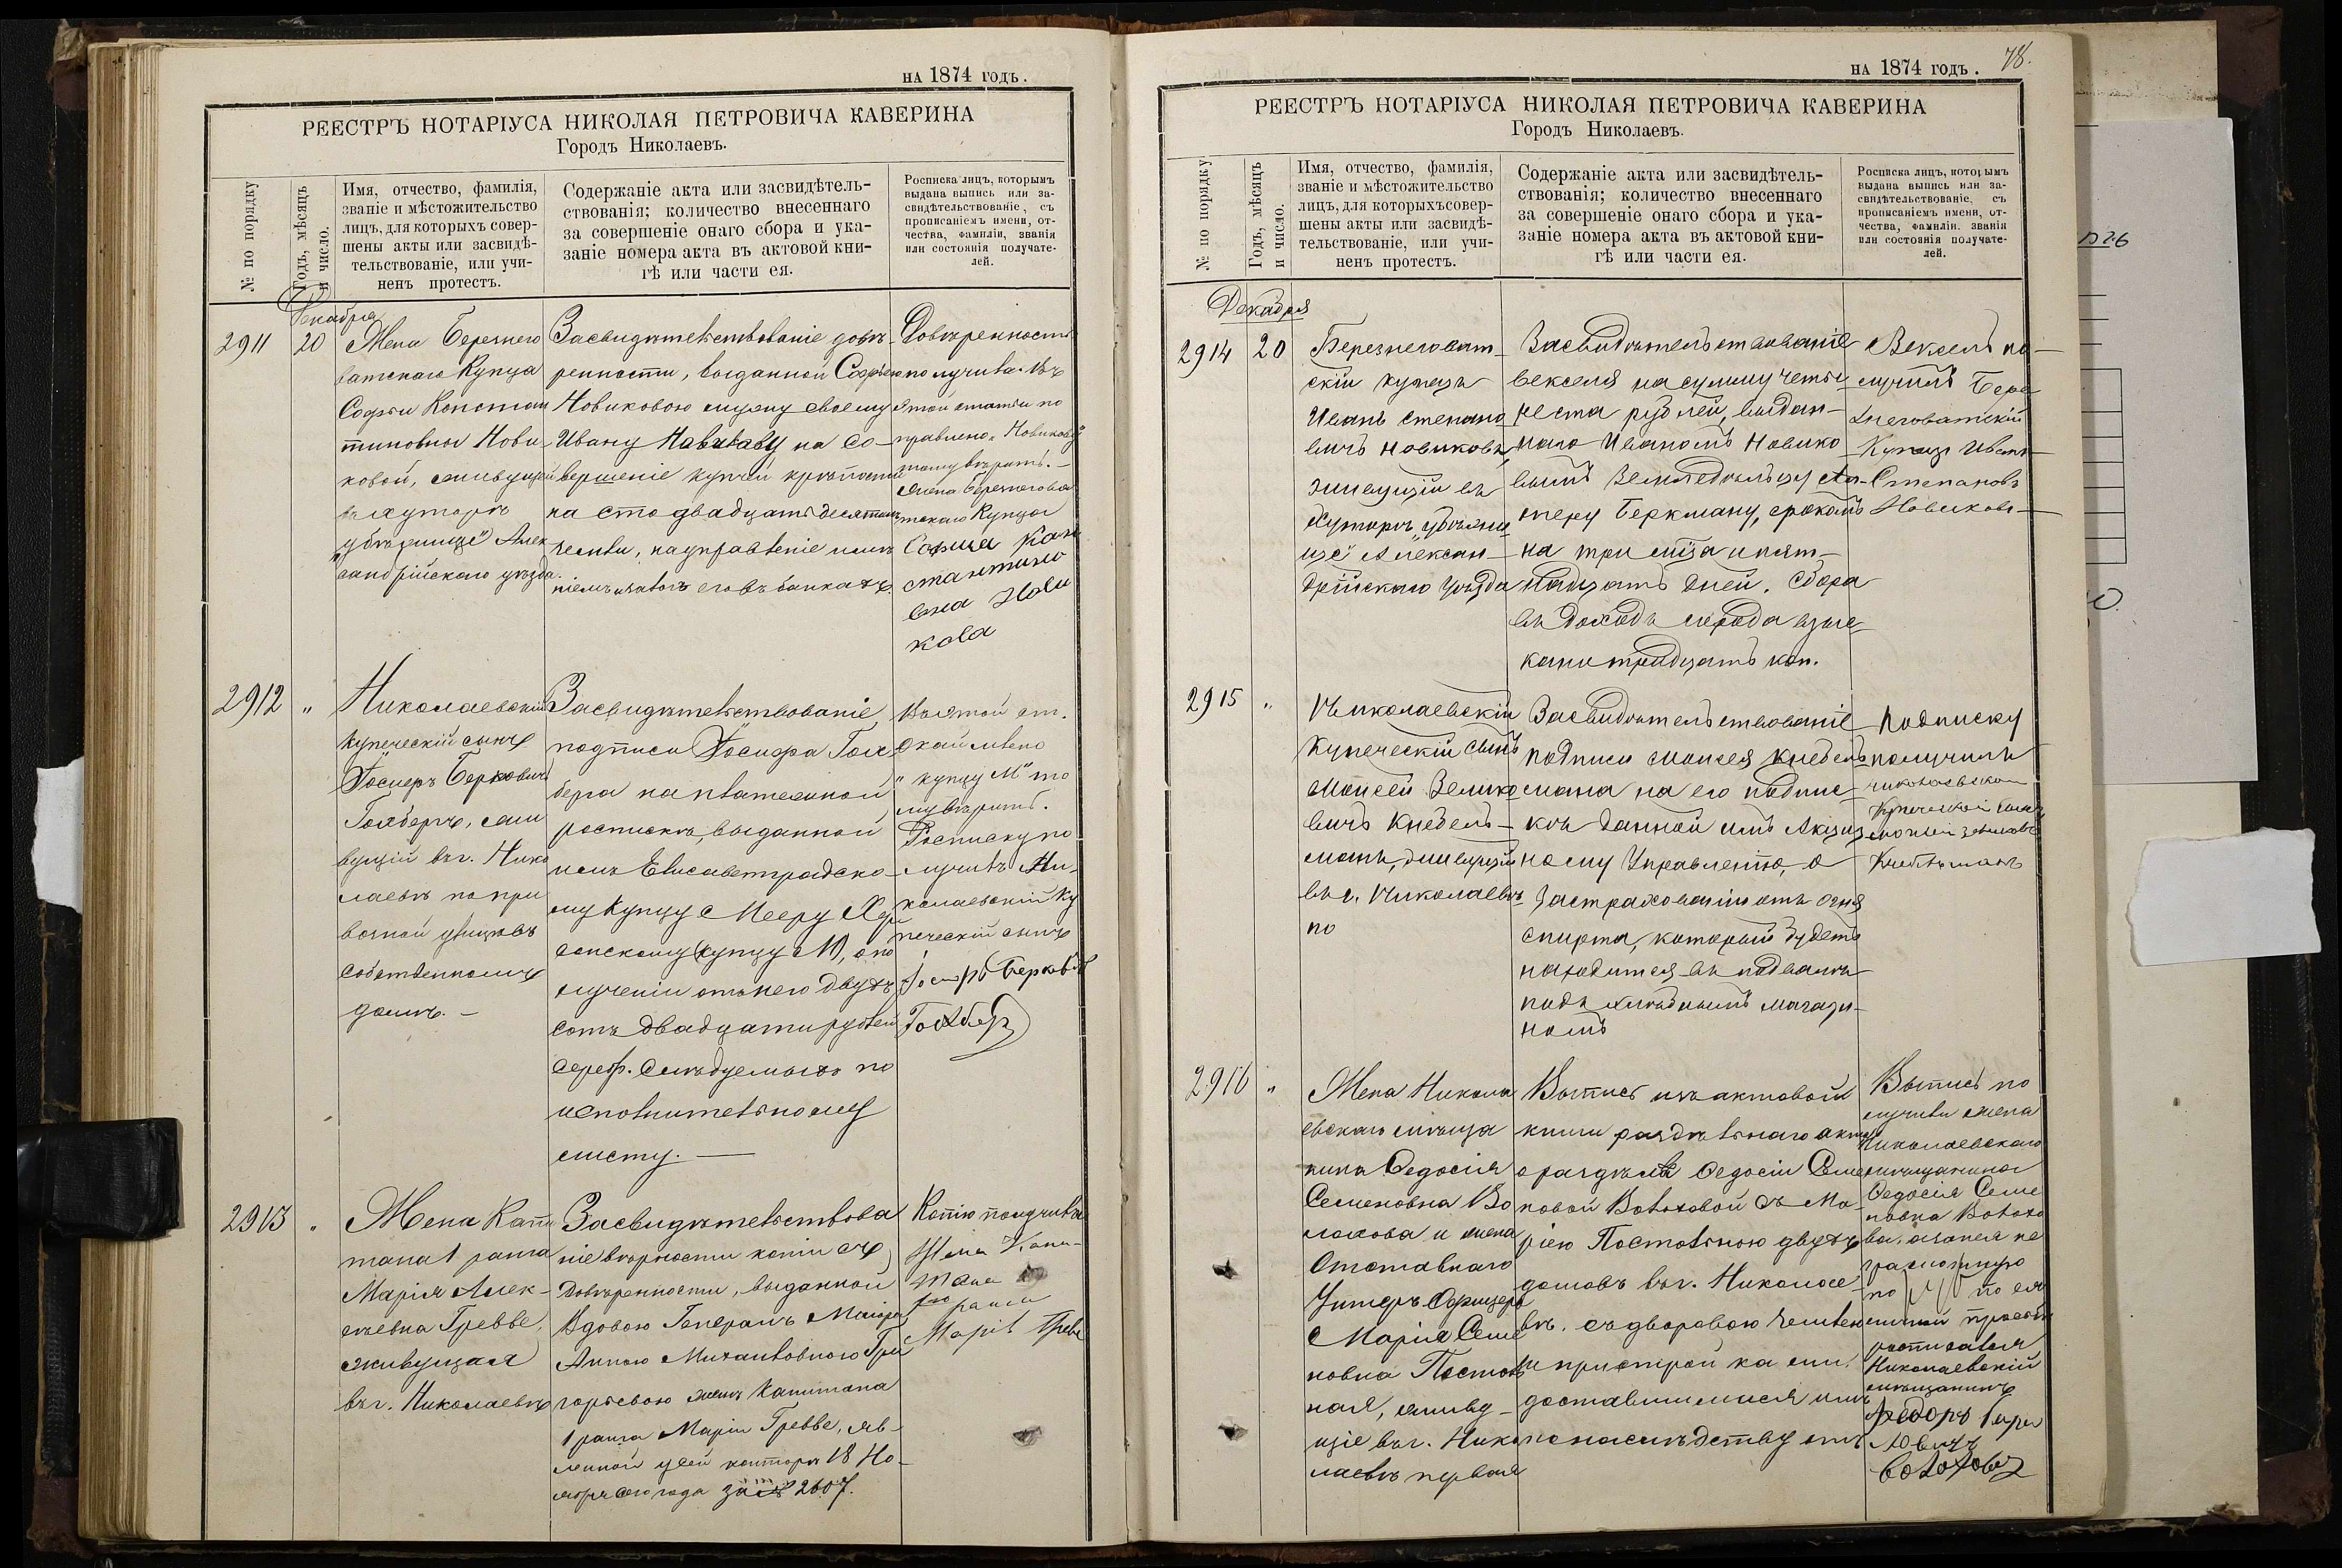 на 1874 годъ.
РЕЕСТРЪ НОТАРІУСА НИКОЛАЯ ПЕТРОВИЧА КАВЕРИНА
Городъ Николаевъ.
№ по порядку
Годъ, мѣсяцъ
и число.
Имя, отчество, фамилія,
званіе и мѣстожительство
лицъ, для которыхъ совер-
шены акты или засвидѣ-
тельствованіе, или учи-
ненъ протестъ.
Содержаніе акта или засвидѣтель-
ствованія; количество внесеннаго
за совершеніе онаго сбора и ука-
заніе номера акта въ актовой кни-
гѣ или части ея.
Росписка лицъ, которымъ
выдана выпись или за-
свидѣтельствованіе, съ
прописаніемъ имени, от-
чества, фамиліи, званія
или состоянія получате-
лей.
Декабря
2911
20
Жена Березнего
ватскаго Купца
Софья Констан
тиновна Нови
ковой, живущей
въ хуторѣ
"убѣжище" Алек
сандрійскаго уѣзда.
Засвидѣтельствованіе довѣ-
ренности, выданной Софьею
Новиковою мужу своему
Ивану Новикову на со-
вершеніе купчей крѣпости
на сто двадцать десятинъ
земли, на управленіе имѣ
ніемъ и залогъ его въ банкахъ.
Довѣренность
получила. Въ
этой статьи по
правлено "Новикову"
тому вѣрить.-
Жена Березнегова
тскаго Купца
София Кон
стантино
вна Нови
кова
2912
"
Николаевскій
купеческій сынъ
Іосифъ Берковичъ
Голдбергъ, жи
вущій въ г. Нико
лаевѣ по при
возной улицѣ въ
собственномъ
домѣ. -
Засвидѣтельствованіе
подписи Іосифа Голд
берга на платежной
роспискѣ, выданной
имъ Елисаветградско-
му Купцу Мееру Хер
сонскому (купцу М), о по
лученіи отъ него двухъ
сотъ двадцати рублей
сереб. слѣдуемыхъ по
исполнительному
листу. -
Въ этой ст.
окаймлено
"купцу М" то
му вѣрить.
Росписку по
лучилъ Ни-
колаевскій Ку
печескій сынъ
Іосифъ Берков
Голдберг
2913
"
Жена Капи
тана 1 ранга
Марія Алек-
сѣевна Гревве,
живущая
въ г. Николаевѣ
Засвидѣтельствова
ніе вѣрности копіи съ
довѣренности, выданной
Вдовою Генералъ Маіора
Анною Михайловною Гри
горьевою женѣ Капитана
1 ранга Маріи Гревве, яв-
ленной у сей конторѣ 18 Но-
ября сего года за № 2607.
Копію получила
Жена Капи-
тана
1го ранга
Марія Греве
на 1874 годъ.
78.
РЕЕСТРЪ НОТАРІУСА НИКОЛАЯ ПЕТРОВИЧА КАВЕРИНА
Городъ Николаевъ.
№ по порядку
Годъ, мѣсяцъ
и число.
Имя, отчество, фамилія,
званіе и мѣстожительство
лицъ, для которыхъ совер-
шены акты или засвидѣ-
тельствованіе, или учи-
ненъ протестъ.
Содержаніе акта или засвидѣтель-
ствованія; количество внесеннаго
за совершеніе онаго сбора и ука-
заніе номера акта въ актовой кни-
гѣ или части ея.
Росписка лицъ, которымъ
выдана выпись или за-
свидѣтельствованіе, съ
прописаніемъ имени, от-
чества, фамиліи, званія
или состоянія получате-
лей.
Декабря
2914
20
Березнеговат-
скій купецъ
Иванъ Степано
вичъ Новиковъ,
живущій въ
Хуторѣ "убѣжи
ще" Алексан-
дрійскаго Уѣзда
Засвидѣтельствованіе
векселя на сумму четы
реста рублей, выдан-
наго Иваномъ Новико
вымъ Земледѣльцу
Беркману, срокомъ
на три мѣсяца и пят-
надцать дней. Сбора
въ доходъ города взыс-
кано тридцать коп.
Вексель по-
лучилъ Бере
знеговатскій
Купецъ Иванъ
Степановъ
Новиковъ
2915
"
Николаевскій
Купеческій сынъ
Моисей Зелико
вичъ Кнебель-
манъ, живущій
въ г. Николаевѣ
по
Засвидѣтельствованіе
подписи Моисея Кнебель
мана на его подпис-
кѣ данной имъ Акциз
ному Управленію, о
застрахованіи отъ огня
спирта, который будетъ
находится въ подвалѣ
подъ хлѣбнымъ магази-
номъ
Подписку
получилъ
николаевскои
Купеческой сынъ
Моисей Зеликовъ
Кнебельманъ
2916
"
Жена Никола
евскаго мѣща
нина Ѳедосія
Семеновна Во
лохова и жена
Отставнаго
Унтеръ-Офицера
Марія Семе
новна Постоль
ная, живу-
щіе въ г. Нико
лаевѣ первая
Выпись изъ актовой
книги раздѣльнаго акта
о раздѣлѣ Ѳедосіи Семе
новой Волоховой съ Ма-
ріею Постольною двухъ
домовъ въ г. Николае-
вѣ. съ дворовою землею
и пристройками,
доставшимися имъ
по наслѣдству отъ
Выпись по
лучила жена
Николаевскаго
мѣщанина
Ѳедосія Семе
новна Волохо
ва, а за нея не
грамотную
по ея
личной просьбѣ
росписался
Николаевскій
мѣщанинъ
Федоръ
Волохов